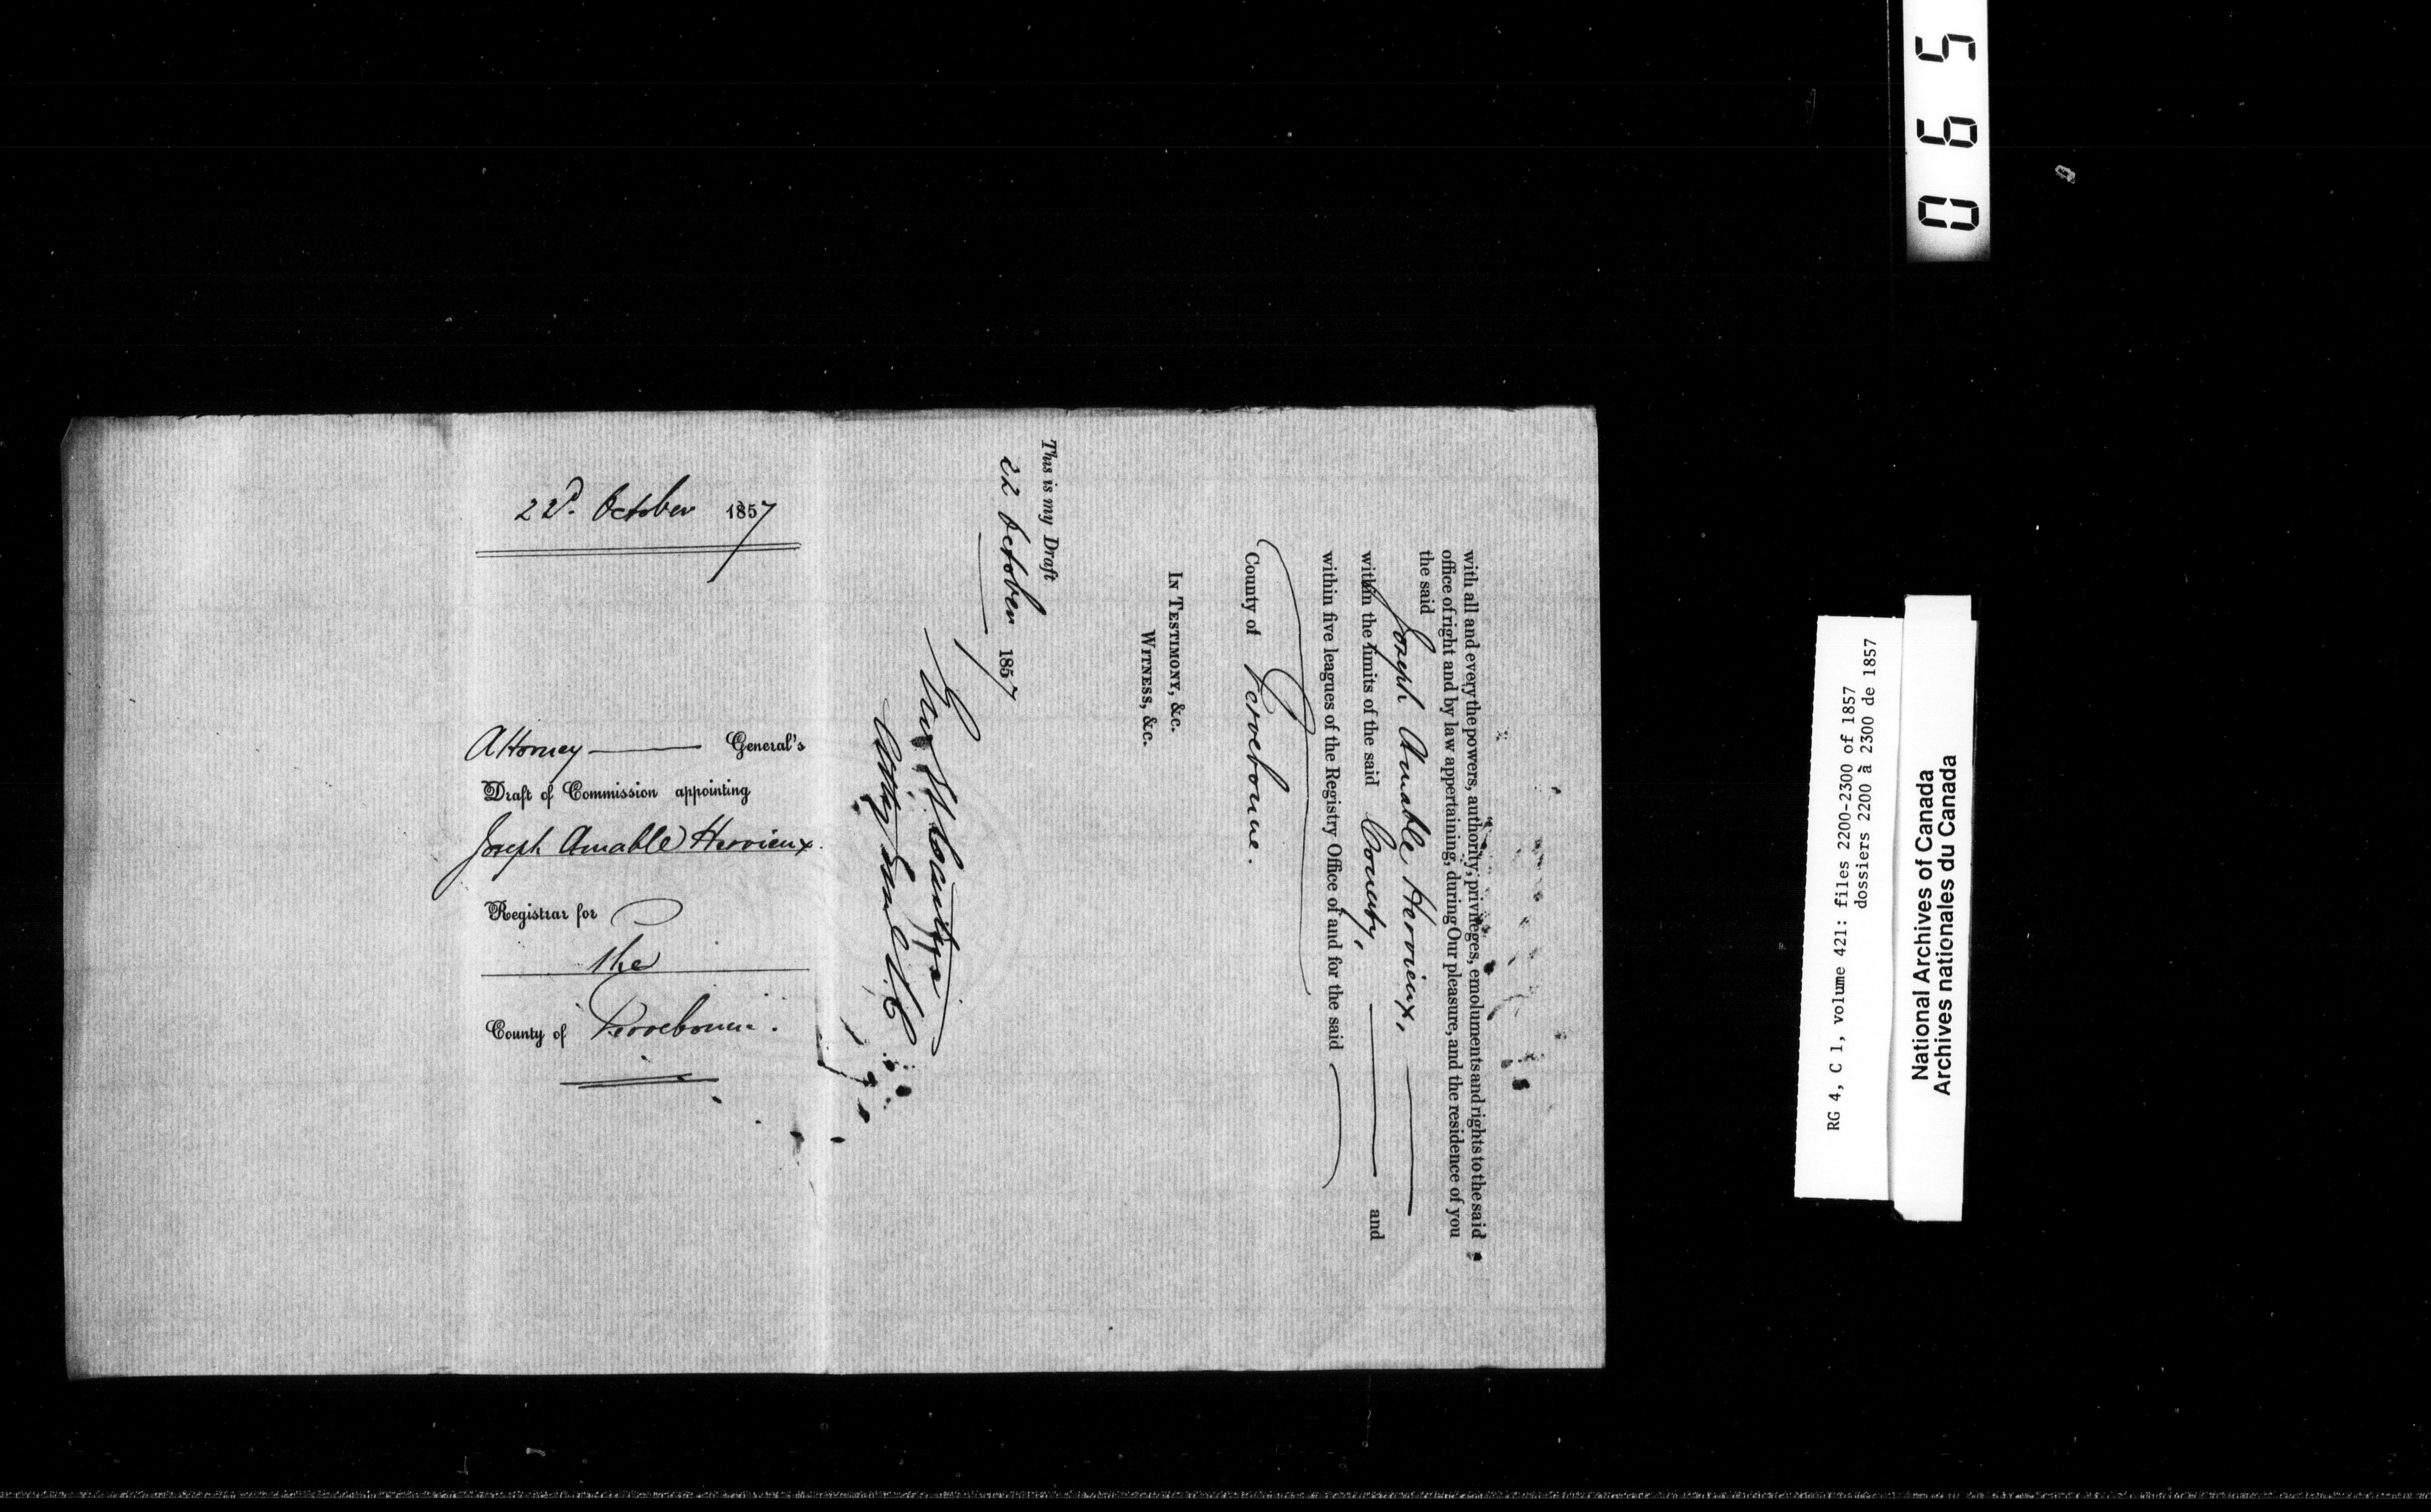 with all and every the powers, authority, privileges, emoluments and rights to the said
office of right and by law appertaining, during Our pleasure, and the residence of you
the said Joseph Amable Hervieux,
within the limits of the said County, and
within five leagues of the Registry Office of and for the said
County of Terrebonne.
In Testimony, &c.
Witness, &c.
This is my Draft
22 October 1857
Geo. Et. Cartier
Atty Genl L.C.
22d. October 1857
Attorney General's
Draft of Commission appointing
Joseph Amable Hervieux
Registrar for
the
County of Terrebonne.
0690
RG 4, C 1, volume 421: files 2200-2300 of 1857
dossiers 2200 à 2300 de 1857
National Archives of Canada
Archives nationales du Canada